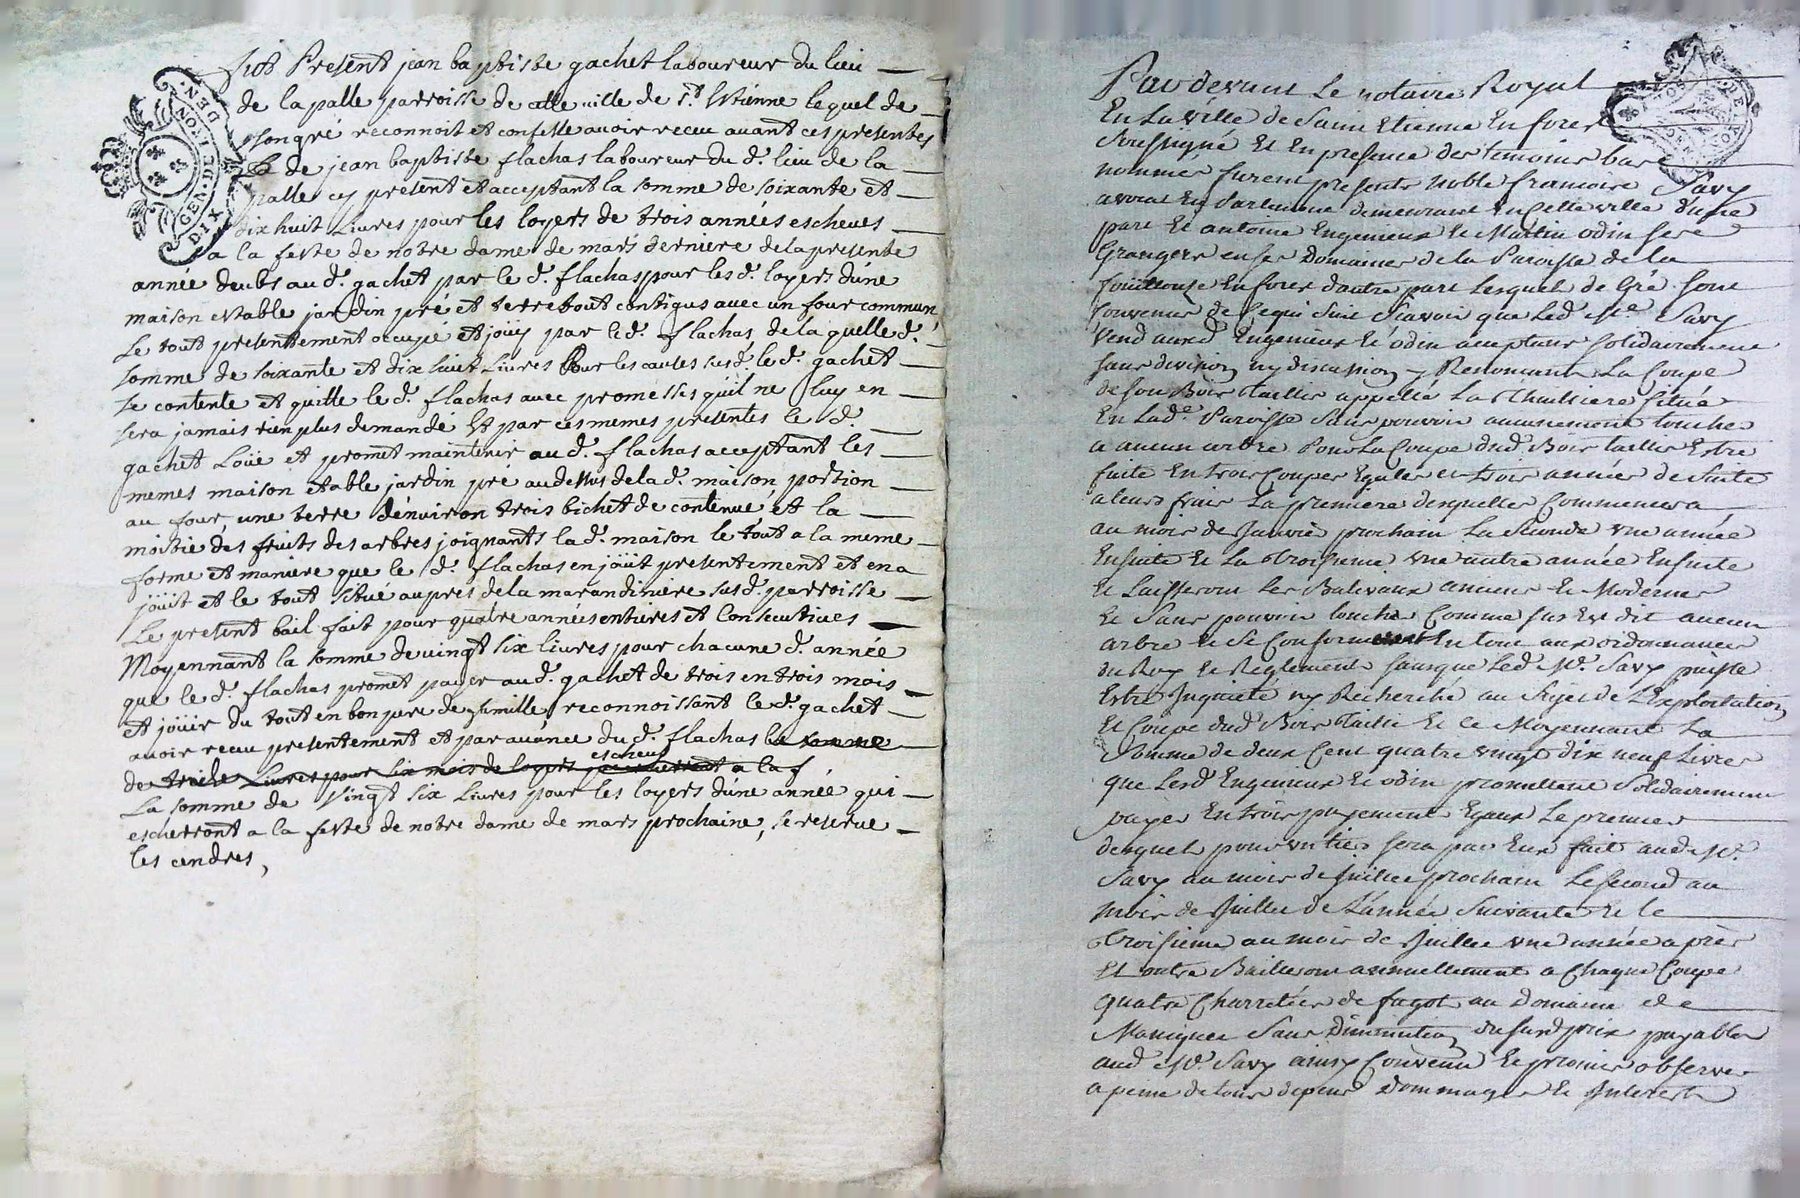 fut Present jean baptiste gachet laboureur du lieu
de la palle parroisse de cette ville de st. Estienne lequel de
son gré reconnoit et confesse avoir receu avant ces presentes
de jean baptiste flachas laboureur du d. lieu de la
palle cy present et acceptant la somme de soixante et
dix huit Livres pour les loyers de trois années escheues
a la feste de notre dame de mars derniere de la presente
année deubs au d. gachet par le d. flachas pour les d. loyers dune
maison estable jardin pré et terre tout contigus avec un four commun
Le tout presentement occupé et jouy par le d. flachas, de la quelle d.
somme de soixante et dix huit Livres Pour les causes susd. le d. gachet
se contente et quitte le d. flachas avec promesses quil ne luy en
sera jamais rien plus demandé Et par ces memes presentes le d.
gachet Loüe et promet maintenir au d. flachas acceptant les
memes maison etable jardin pré au dessus de la d. maison portion
au four, une terre dénviron trois bichet de contenüe et la
moitie des fruits des arbres joignants la d. maison le tout a la meme
forme et maniere que le d. flachas en joüit presentement et en a
joüit et le tout situé aupres de la marandiniere susd. parroisse
Le present bail fait pour quatre années entieres et Consecutives
Moyennant la somme de vingt six livres pour chacune d. année
que le d. flachas promet payer au d. gachet de trois en trois mois
et joüir du tout en bon pere de famille, reconnoissant le d. gachet
avoir receu presentement et par avance du d. flachas la somme
escheus
de treize Livres pour six mois de loyers a la f
La somme de Vingt six Livres pour les loyers dune année qui
escherront a la feste de notre dame de mars prochaine, se reserve
les cendres,
DIX
GEN. DE LYON
Par devant Le notaire Royal
En La ville de Saint Etienne En forez
Soussigné Et En presence des temoins bas
nommés furent presents Noble francois Savy
avocat En Parlement demeurant En cette ville d'une
part Et antoine Engenieux Et Martin odin
Grangers en ses Domaines de la Paroisse de la
foüillouze En forez d'autre part Lesquels de Gré sont
convenus de ce qui suit Scavoir que Led. Sr. Savy
vend auxd. Engenieux Et odin acceptans solidairement
sans division ny discussion y Renoncant La Coupe
de son Bois taillis appellé La situé
En Lad.e Paroisse Sans pouvoir aucunement toucher
a aucun arbre Pour La Coupe dud. Bois taillis Estre
faite En trois Coupes Egales en trois années de suite
a leurs frais La premiere desquelles Commencera
au mois de Janvier prochain La seconde une année
Ensuite Et La troisieme une autre année Ensuite
Et Laisseront Les Baliveaux anciens Et Modernes
Et Sans pouvoir toucher Comme sus Est dit aucun
arbre Et Se Conformeront En tout aux ordonnances
du Roy Et Reglements sans que Led. Sr. Savy puisse
Estre Inquieté ny Recherché au Sujet de L'exploitation
Et Coupe dud. Bois taillis Et Ce Moyennant La
Somme de deux Cent quatre vingt dix neuf Livres
que Lesd. Engenieux Et odin promettent Solidairement
payer En trois payements Egaux Le premier
desquels pour un tiers sera par Eux fait aud. Sr.
Savy au mois de Juillet prochain Le second au
Mois de Juillet de L'année Suivante Et le
troisieme au mois de Juillet une année après
Et outre Bailleront annuellement a Chaque Coupe
quatre Charretées de fagot au Domaine de
Sans Diminution dusurd. prix payable
aud. Sr. Savy ainsy Convenu Et promis observer
a peine de tous depens Dommages Et Interests